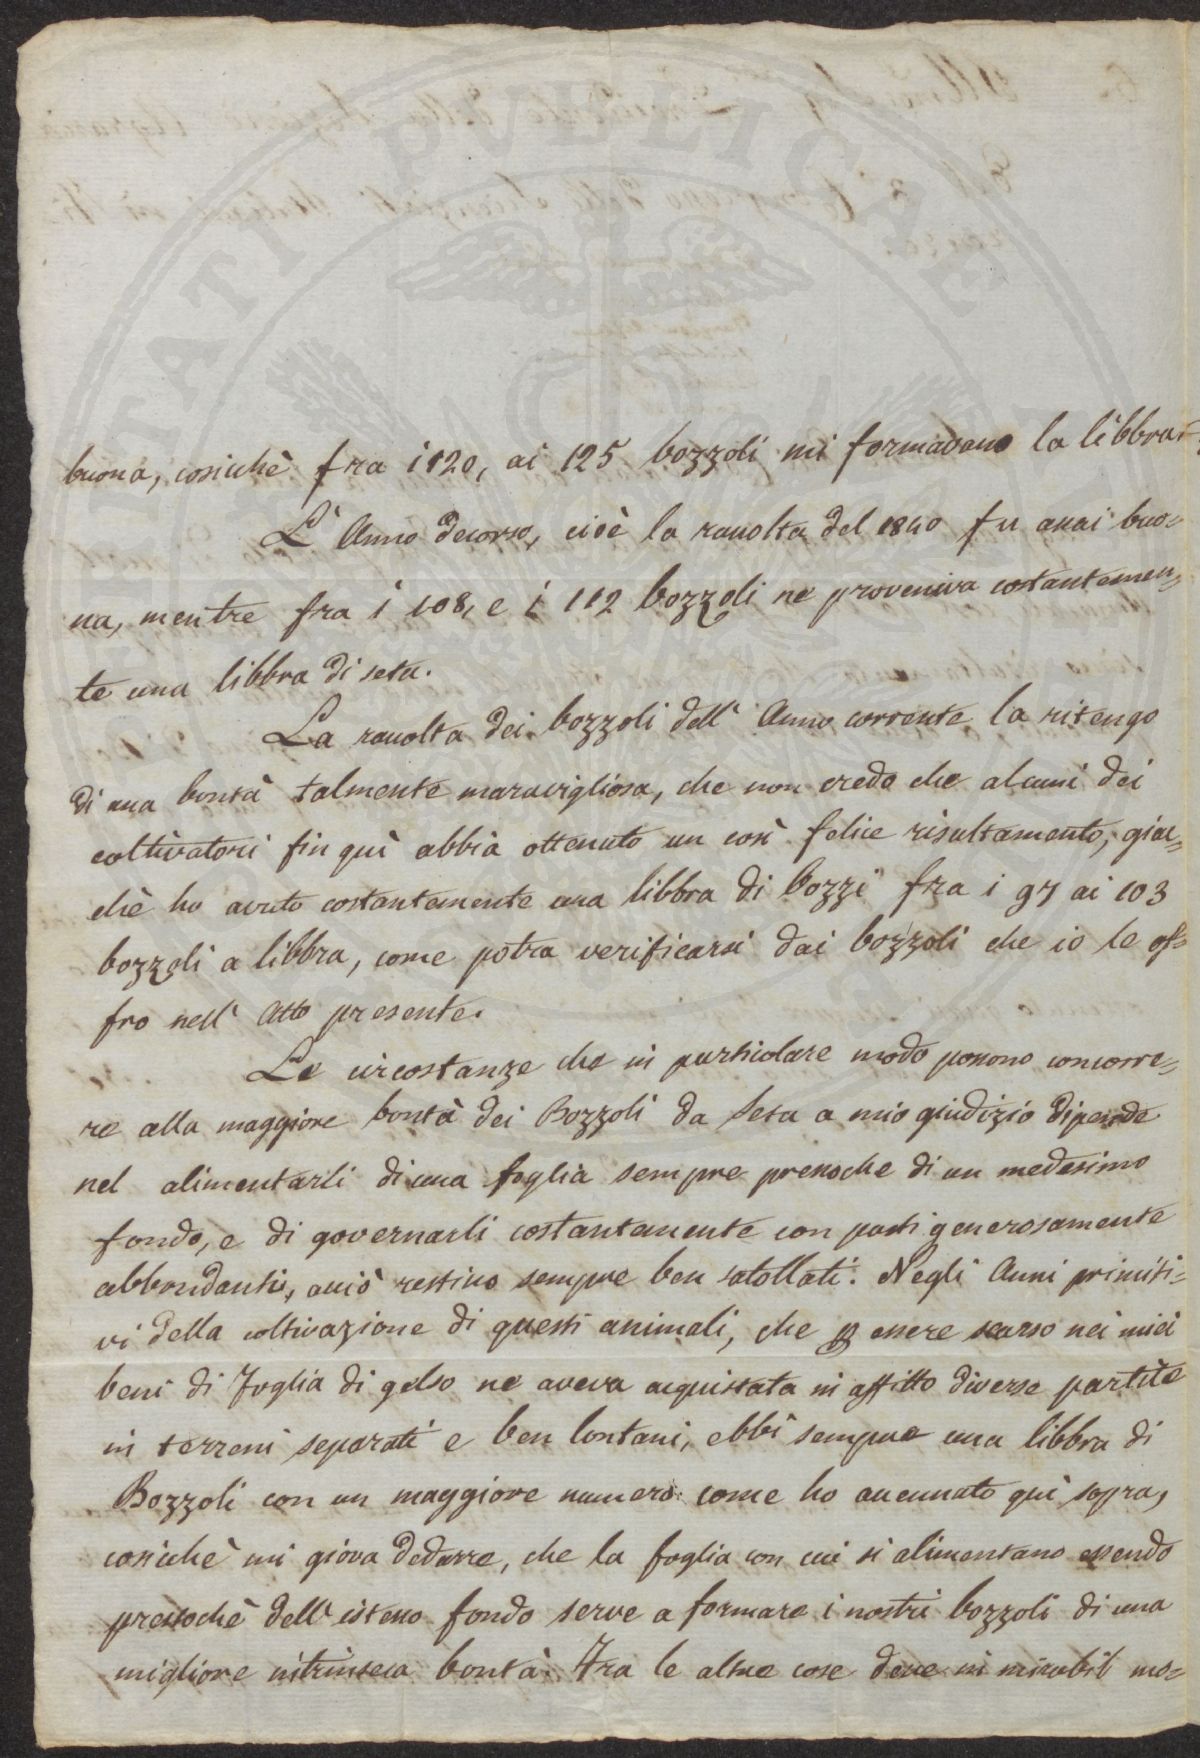 buona, cosichè fra i 120, ai 125 bozzoli mi formavano la libbra.
L' Anno decorso, cioè la racolta del 1840 fu assai buo=
na, mentre fra i 108, e i 112 bozzoli ne proveniva costantemen=
te una libbra di seta.
La racolta dei bozzoli dell' Anno corrente la ritengo
di una bontà talmente maravigliosa, che non credo che alcuni dei
coltivatori fin quì abbia ottenuto un così felice risultamento, giac=
chè ho avuto costantemente una libbra di bozzi fra i 97 ai 103
bozzoli a libbra, come potra verificarsi dai bozzoli che io le of=
fro nell' Atto presente.
Le circostanze che in particolare modo possono concorre=
re alla maggiore bontà dei Bozzoli da Seta a mio giudizio dipende
nel alimentarli di una foglia sempre pressoche di un medesimo
fondo, e di governarli costantemente con pasti generosamente
abbondanti, acciò restino sempre ben satollati. Negli Anni primiti=
vi della coltivazione di questi animali, che p essere scarso nei miei
beni di Foglia di gelso ne aveva acquistata in affitto diverse partite
in terreni separati e ben lontani, ebbi sempre una libbra di
Bozzoli con un maggiore numero come ho accennato quì sopra,
cosichè mi giova dedurre, che la foglia con cui si alimentano essendo
pressochè dell' istesso fondo serve a formare i nostri bozzoli di una
migliore intrinseca bontà. Fra le altre cose deve in mirabil mo=
PVBLICAE